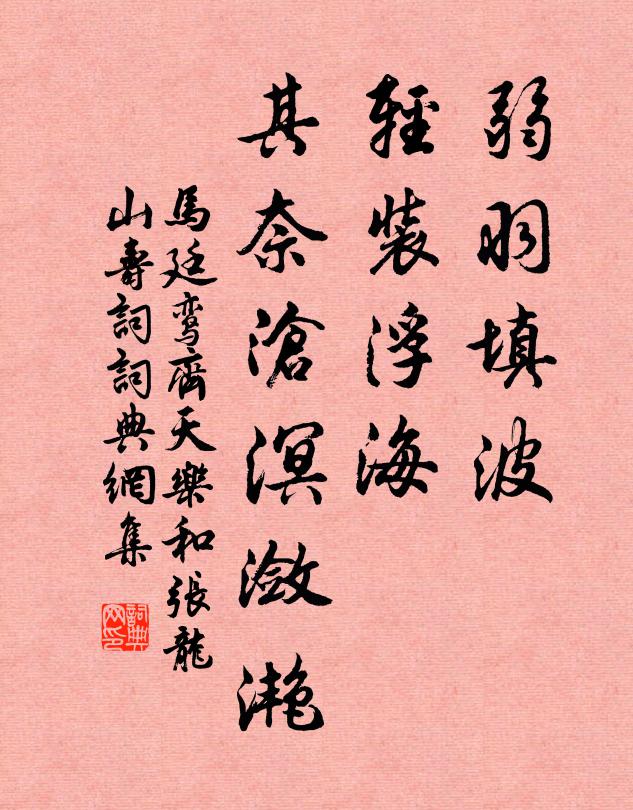 弱羽填波
輕裝浮海
其奈滄溟瀲灔
馬廷鸾齊天樂和張龍
山壽詞詞典網集
詞典网印